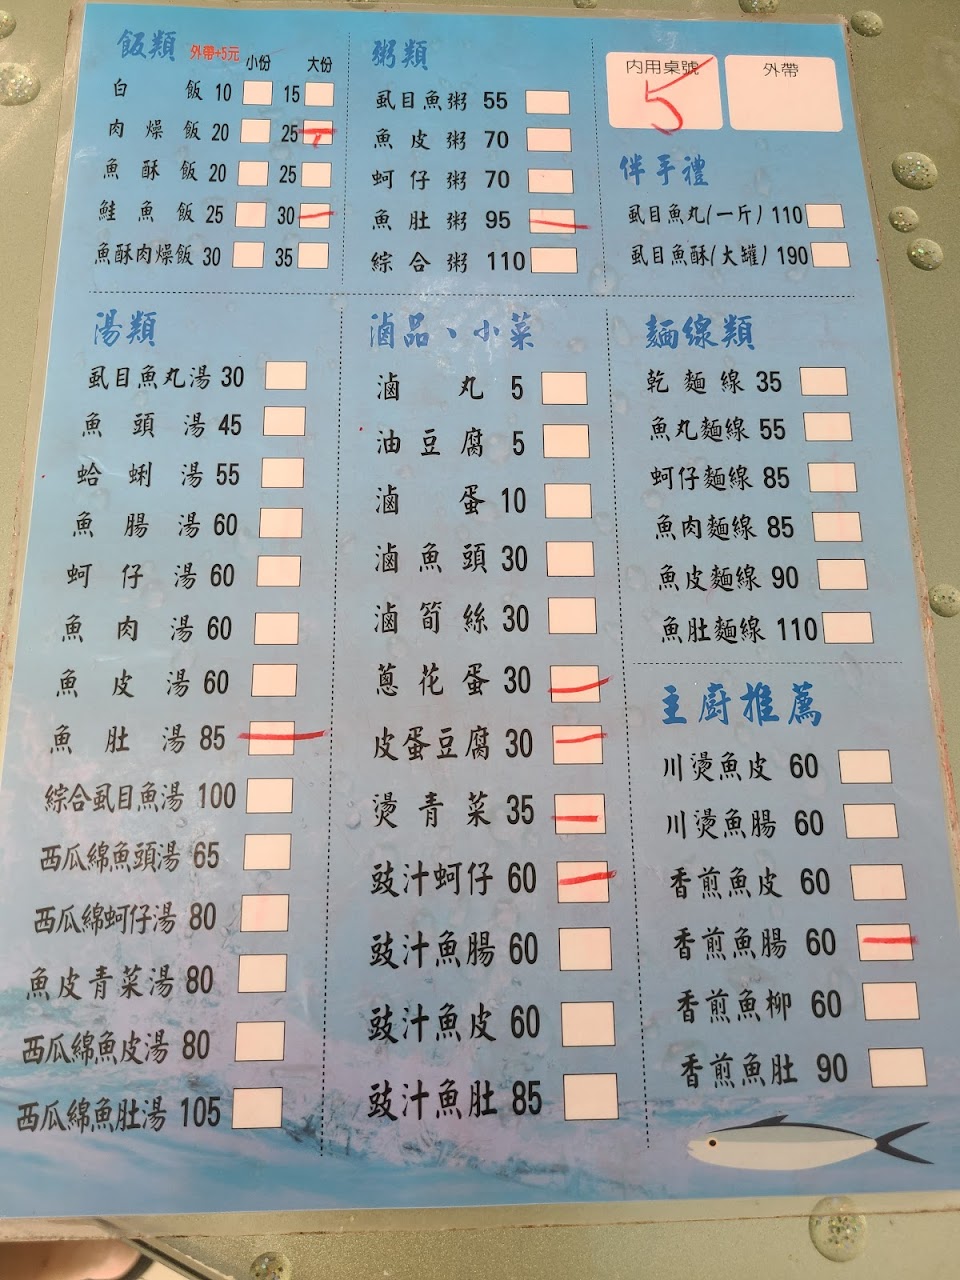 飯類 外帶+5元 小份 大份
白飯 10 15
肉燥飯 20 25
魚酥飯 20 25
鮭魚飯 25 30
魚酥肉燥飯 30 35
粥類
虱目魚粥 55
魚皮粥 70
蚵仔粥 70
魚肚粥 95
綜合粥 110
內用桌號 外帶
5
伴手禮
虱目魚丸(一斤) 110
虱目魚酥(大罐) 190
湯類
虱目魚丸湯 30
魚頭湯 45
蛤蜊湯 55
魚腸湯 60
蚵仔湯 60
魚肉湯 60
魚皮湯 60
魚肚湯 85
綜合虱目魚湯 100
西瓜綿魚頭湯 65
西瓜綿蚵仔湯 80
魚皮青菜湯 80
西瓜綿魚皮湯 80
西瓜綿魚肚湯 105
滷品、小菜
滷丸 5
油豆腐 5
滷蛋 10
滷魚頭 30
滷筍絲 30
蔥花蛋 30
皮蛋豆腐 30
燙青菜 35
豉汁蚵仔 60
豉汁魚腸 60
豉汁魚皮 60
豉汁魚肚 85
麵線類
乾麵線 35
魚丸麵線 55
蚵仔麵線 85
魚肉麵線 85
魚皮麵線 90
魚肚麵線 110
主廚推薦
川燙魚皮 60
川燙魚腸 60
香煎魚皮 60
香煎魚腸 60
香煎魚柳 60
香煎魚肚 90